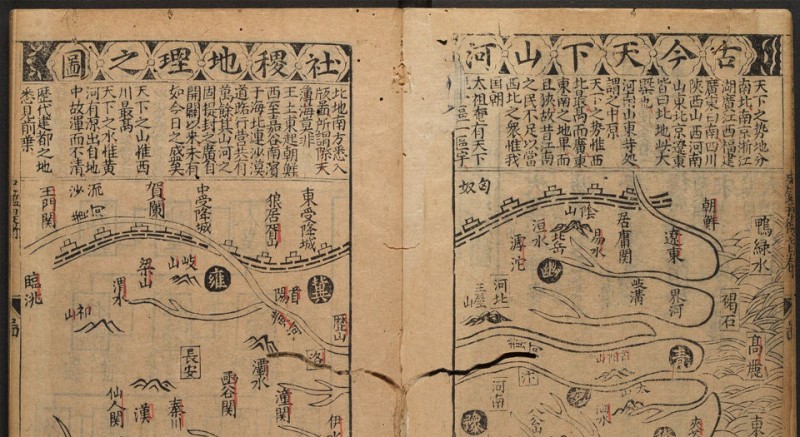 古今天下山河
天下之勢地分
南北南京浙江
湖廣江西福建
廣東曰南四川
陝西山西河南
山東北京遼東
皆曰北地峡大
槩也
河南山東等処
謂之中原
天下之勢惟西
北最高而廣東
東南之地單而
且狹故昔江南
之民不足以當
西北之衆惟我
國朝
太祖有天下
一區宇
鴨綠水
朝鮮
高麗
碣石
遼東
界河
居庸關
岐溝
易水
陰山
北岳
恒水
滹沱
匈奴
幽
河北
王屋山
青
河南
豫
東
社稷地理之圖
北地南方悉入
版圖所謂際天
薄海豈非
王土東起朝鮮
西至嘉谷南濱
于海北連沙漠
道路行營共有
萬餘其山河之
固提封之廣自
開闢以來未有
如今日之盛矣
天下之山惟西
川最高
天下之水惟黃
河有源出自地
中故渾而不清
歷代建都之地
悉見前葉
東受降城
狼居胥山
中受降城
賀蘭
流沙
玉門関
臨洮
冀
雍
岐山
梁山
渭水
歷山
洛
長安
灞水
潼関
函谷関
秦川
漢
仙人関
伊水